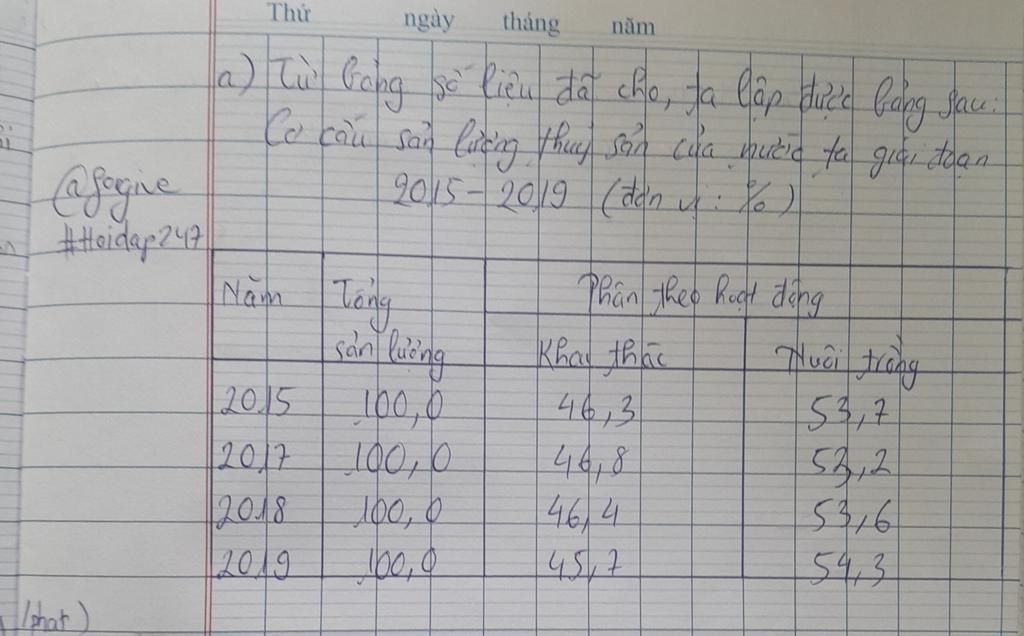 Thứ ngày tháng năm
a) Từ bảng số liệu đã cho, ta lập được bảng sau:
Cơ cấu sản lượng thuỷ sản của nước ta giai đoạn
2015 - 2019 (đơn vị: %)
@gogive
#Hoidap247
Năm Tổng sản lượng Phân theo hoạt động
Khai thác Nuôi trồng
2015 100,0 46,3 53,7
2017 100,0 46,8 53,2
2018 100,0 46,4 53,6
2019 100,0 45,7 54,3
/phat)